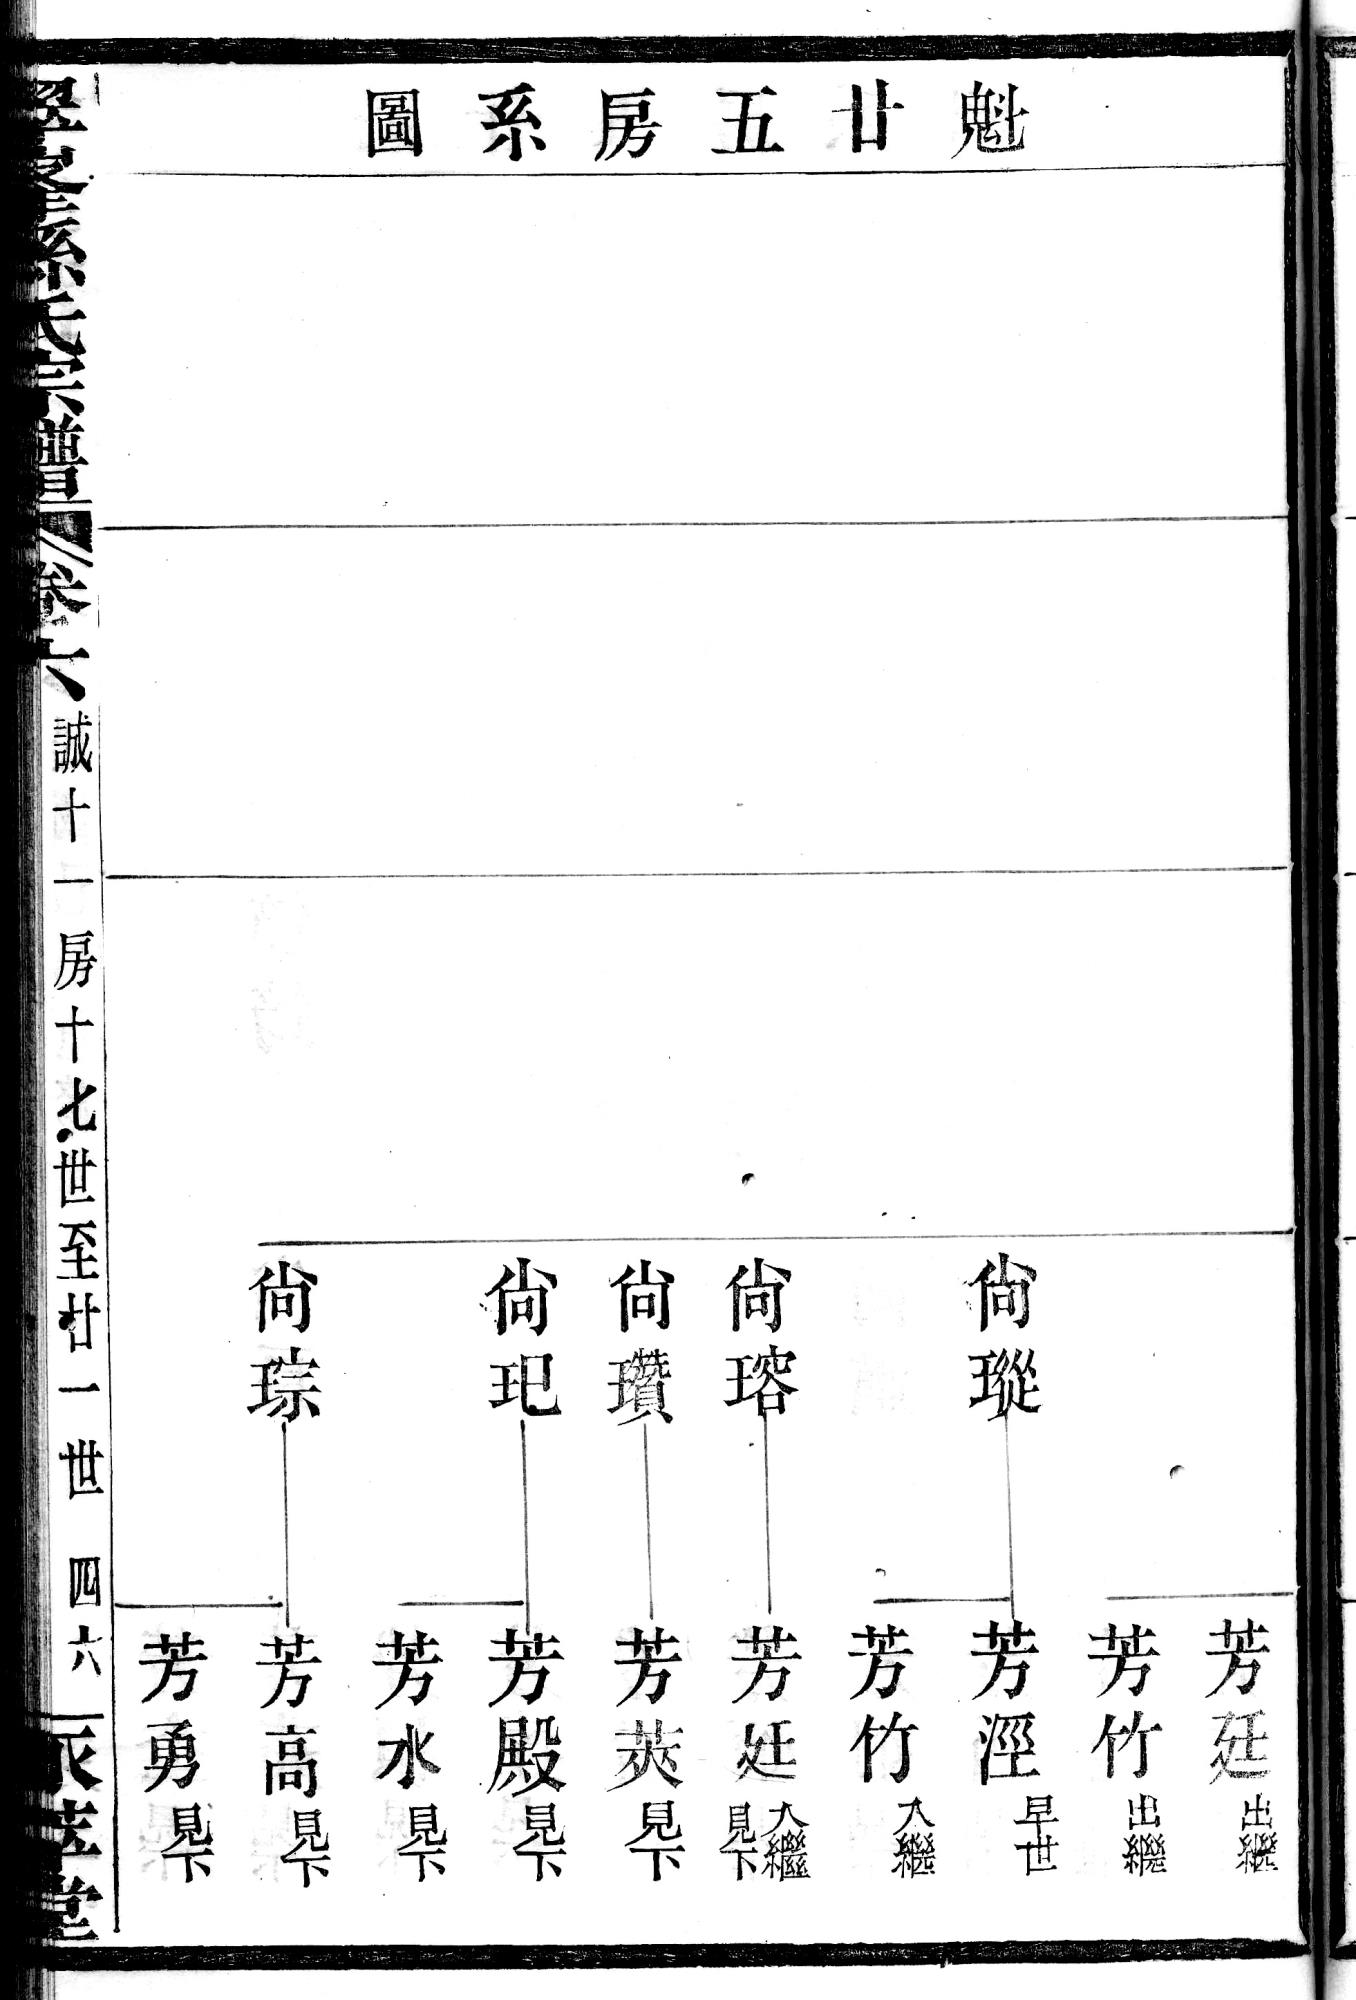 魁廿五房系圖
芳廷 出繼
芳竹 出繼
尙瑽
芳溼 早世
芳竹 入繼
尙瑢
芳廷 入繼 見下
尙瓚
芳莢 見下
尙玘
芳殿 見下
芳水 見下
尙琮
芳高 見下
芳勇 見下
孫氏宗譜
卷六
誠十一房十七世至廿一世
四六
堂